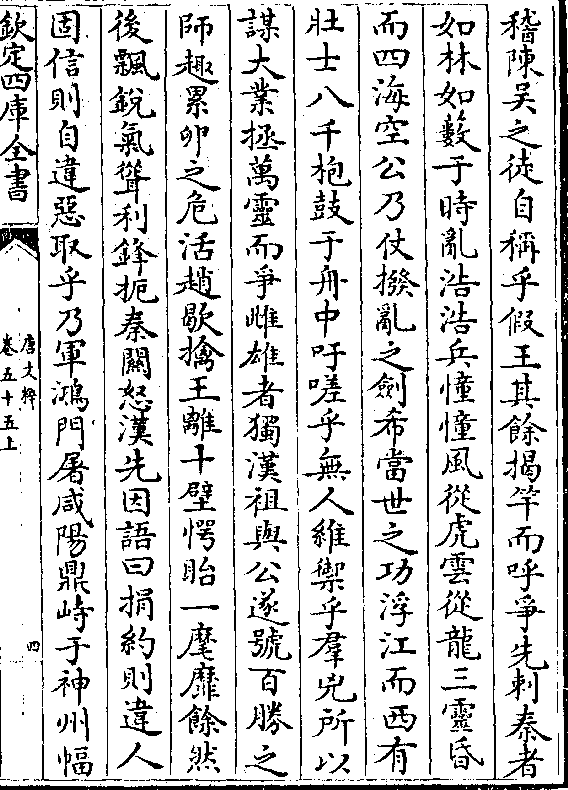 稽陳吴之徒自稱乎假王其餘揭竿而呼爭先剌秦者
如林如藪于時亂浩浩兵憧憧風從虎雲從龍三靈昏
而四海空公乃仗撥亂之劍希當世之功浮江而西有
壯士八千枹鼓于舟中吁嗟乎無人維禦乎羣兇所以
謀大業拯萬靈而爭雌雄者獨漢祖與公遂號百勝之
師趣累卵之危活趙歇擒王離十壁愕眙一麾靡餘然
後飄銳氣聳利鋒扼秦關怒漢先因語曰捐約則違人
固信則自違惡取乎乃軍鴻門屠咸陽鼎峙于神州幅
欽定四庫全書
唐文粹
卷五十五上
四